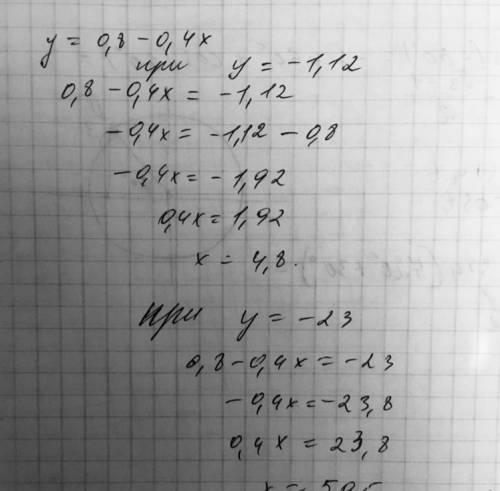 y = 0,8 - 0,4x
при y = -1,12
0,8 - 0,4x = -1,12
-0,4x = -1,12 - 0,8
-0,4x = -1,92
0,4x = 1,92
x = 4,8.
при y = -23
0,8 - 0,4x = -23
-0,4x = -23,8
0,4x = 23,8
x = 59,5